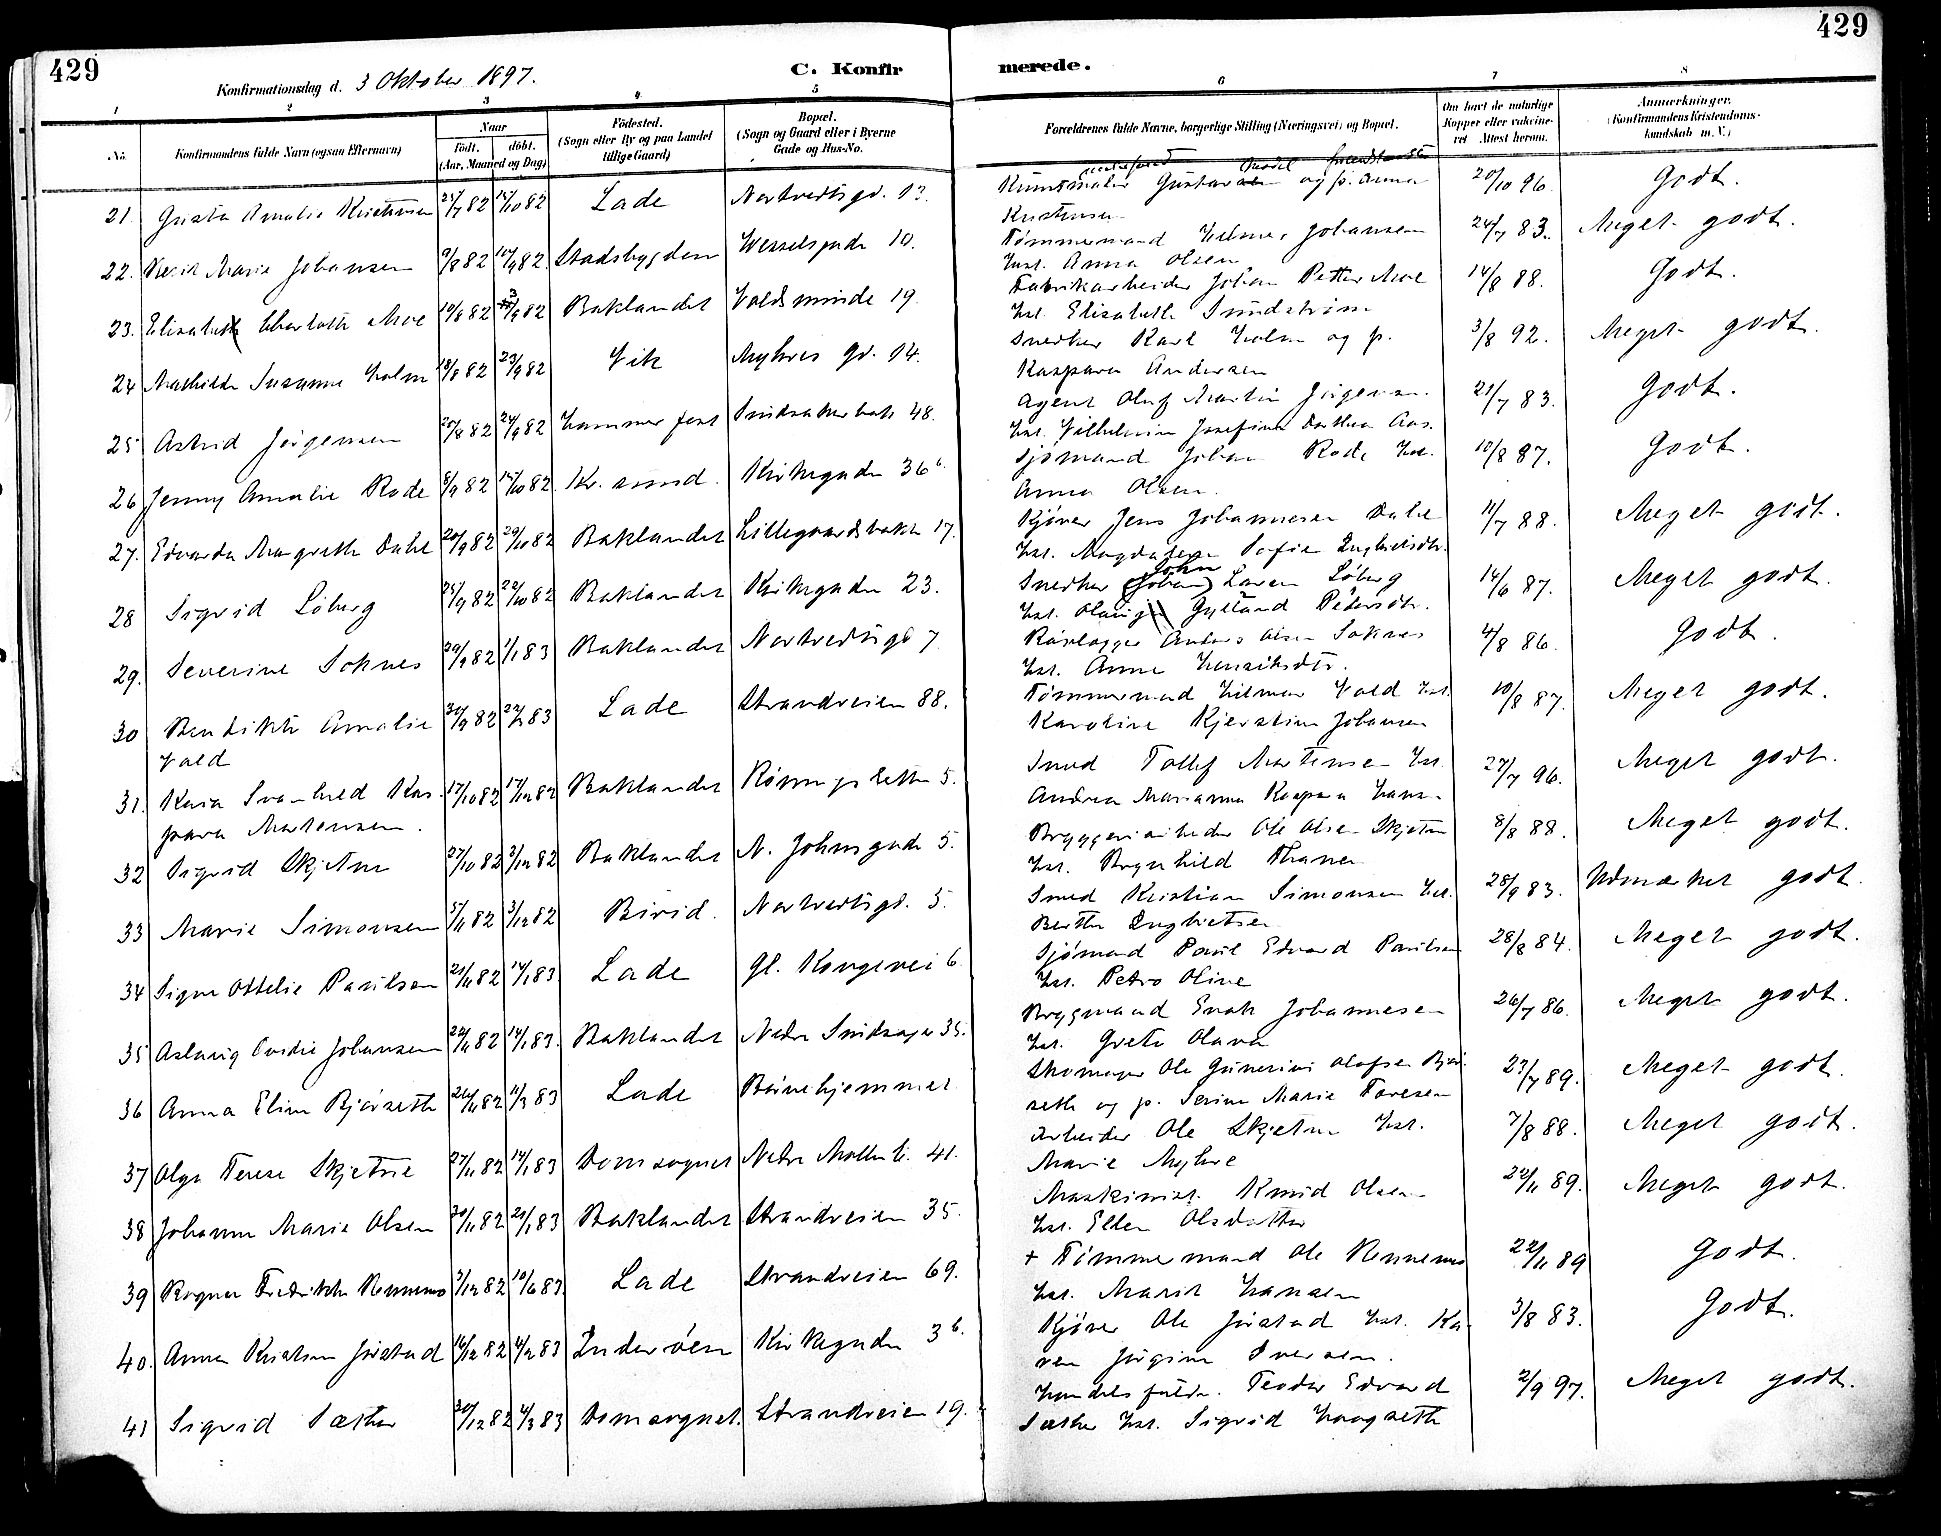 429
429
Konfirmationsdag d. 3 Oktober 1897.
C. Konfir
merede.
1 2 3 4 5 6 7 8
No. Konfirmandens fulde Navn (ogsaa Efternavn) Naar Født. døbt. (Aar, Maaned og Dag) Fødested. (Sogn eller By og paa Landet tillige Gaard) Bopæl. (Sogn og Gaard eller i Byerne Gade og Hus-No. Forældrenes fulde Navne, borgerlige Stilling (Næringsvei) og Bopæl. Om havt de naturlige Kopper eller vakcineret Attest herom. Anmærkninger. (Konfirmandens Kristendomskundskab m. V.)
21. Gusta Amalie Kristensen 21/7 82 15/10 82 Lade Nortvedtsgd. 13. Kunstmaler Gustav og p. Anna Kristensen 20/10 96. Godt.
22. Marie Johansen 9/8 82 10/9 82. Stadsbygden Wesselsgade 10. Tømmermand Hilmer Johansen Hst. Anna Olsen 24/7 83. Meget godt.
23. Elisabeth Charlotte Moe 10/8 82 3/9 82 Baklandet Voldsminde 19. Fabrikarbeider Johan Petter Moe Hst. Elisabeth Sundstrøm 14/8 88. Godt.
24 Mathilde Susanne Holm 18/8 82 23/9 82 Vik Myhres gd. 14. Snedker Karl Holm og p. Kaspara Andersen 3/8 92. Meget godt.
25 Astrid Jørgensen 20/8 82 24/9 82 Hammerfest 48. Agent Oluf Martin Jørgensen Hst. Vilhelmine Josefine Dorthea Aas. 21/7 83. Godt.
26 Jenny Amalie Rode 8/9 82 15/10 82. Kr. sund. Kirkegaden 36 Sjømand Johan Rode Hst. Anna Olsen. 10/8 87. Godt.
27. Edvarda Margrethe Dahl 20/9 82 29/10 82 Baklandet Lillegaardsbakken 17. Kjører Jens Johannesen Dahl Hst. Magdalena Sofie Ingbrictsdtr. 11/7 88. Meget godt.
28 Sigrid Løberg 25/9 82 22/10 82 Baklandet Kirkegaden 23. Snedker (Johan) John Løberg Hst. Gylland Pedersdtr. 14/6 87. Meget godt.
29. Severine Soknes 29/9 82 1/1 83 Baklandet Nortvedtsgd 7. Rørlægger Anders Olsen Soknes Hst. Anne Henriksdtr. 4/8 86. Godt.
30 Bendikte Amalie Vold 30/9 82 83 Lade Strandveien 88. Tømmermand Hilmar Vold Hst. Karoline Kjerstine Johansen 10/8 87. Meget godt.
31. Kaia Svanhild Kaspara Martensen. 17/10 82 17/12 82 Baklandet Rønningsletten 5. Smed Tollef Martensen Hst. Andrea Marianna Kaspara Hans. 27/7 96. Meget godt.
32 Sigrid Skjetne 27/10 82 3/12 82 Baklandet N. Johnsgade 5. Bryggeriarbeider Ole Olsen Skjetne Hst. Brynhild 8/8 88. Meget godt.
33 Marie Simonsen 5/11 82 3/12 82 Birid. Nortvedtsgd. 5. Smed Kristian Simonsen Hst. Berthe Ingbretsen 28/9 83. Udmærket godt.
34 Signe Ottelie Paulsen 21/11 82 14/1 83 Lade Gl. Kongevei 6 Sjømand Paul Edvard Paulsen Hst. Petra Oline 28/8 84. Meget godt.
35 Aslaug Johansen 22/11 82 14/1 83. Baklandet Nedre 35. Brygmand Enok Johannesen Hst. Grete Olava 26/7 86. Meget godt.
36 Anna Eline Bjørseth 26/11 82 11/3 83 Lade Børnehjemmet. Skomager Ole Gunerius Olafsen Bjørseth og p. Serine Marie Foresen 23/7 89. Meget godt.
37 Olga Terese Skjetne 27/11 82 14/1 83 Domsognet Nedre Møllenb. 41. Arbeider Ole Skjetne Hst. Marie Myhre 7/8 88. Meget godt.
38 Johanne Marie Olsen 30/11 82 21/1 83 Baklandet Strandveien 35. Maskinist. Knud Olsen Hst. Ellen Olsdatter 22/11 89. Meget godt.
39 Ragna Fredrikke Rennemo 3/12 82 10/6 83. Lade Strandveien 69. + Tømmermand Ole Rennemo Hst. Marit Hansen 22/11 89 Godt.
40. Anna Kristine Jørstad 16/12 82 4/2 83 Inderøen Kirkegaden 36. Kjører Ole Jørstad Hst. Karen Jørgine Iversen. 3/8 83. Godt.
41 Sigrid Sæther 30/12 82 4/3 83 Domsognet. Strandveien 19. Handelsfuldm. Teodor Edvard Sæther Hst. Sigrid Haagseth 2/9 97. Meget godt.